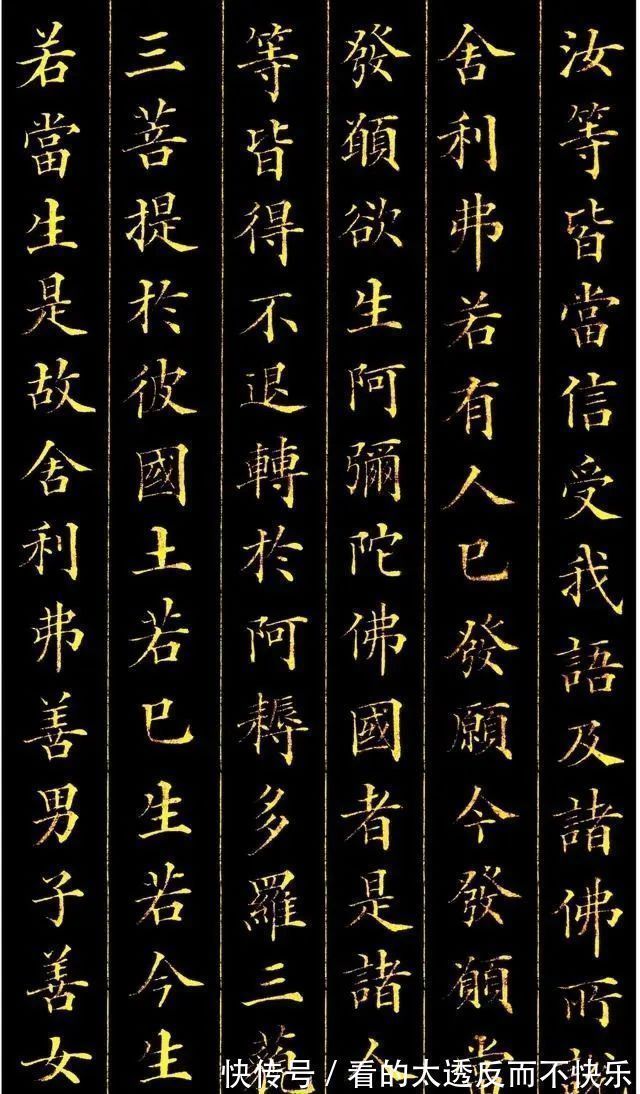 汝等皆當信受我語及諸佛所說
舍利弗若有人已發願今發願當
發願欲生阿彌陀佛國者是諸人
等皆得不退轉於阿耨多羅三藐
三菩提於彼國土若已生若今生
若當生是故舍利弗善男子善女
快传号/看的太透反而不快乐